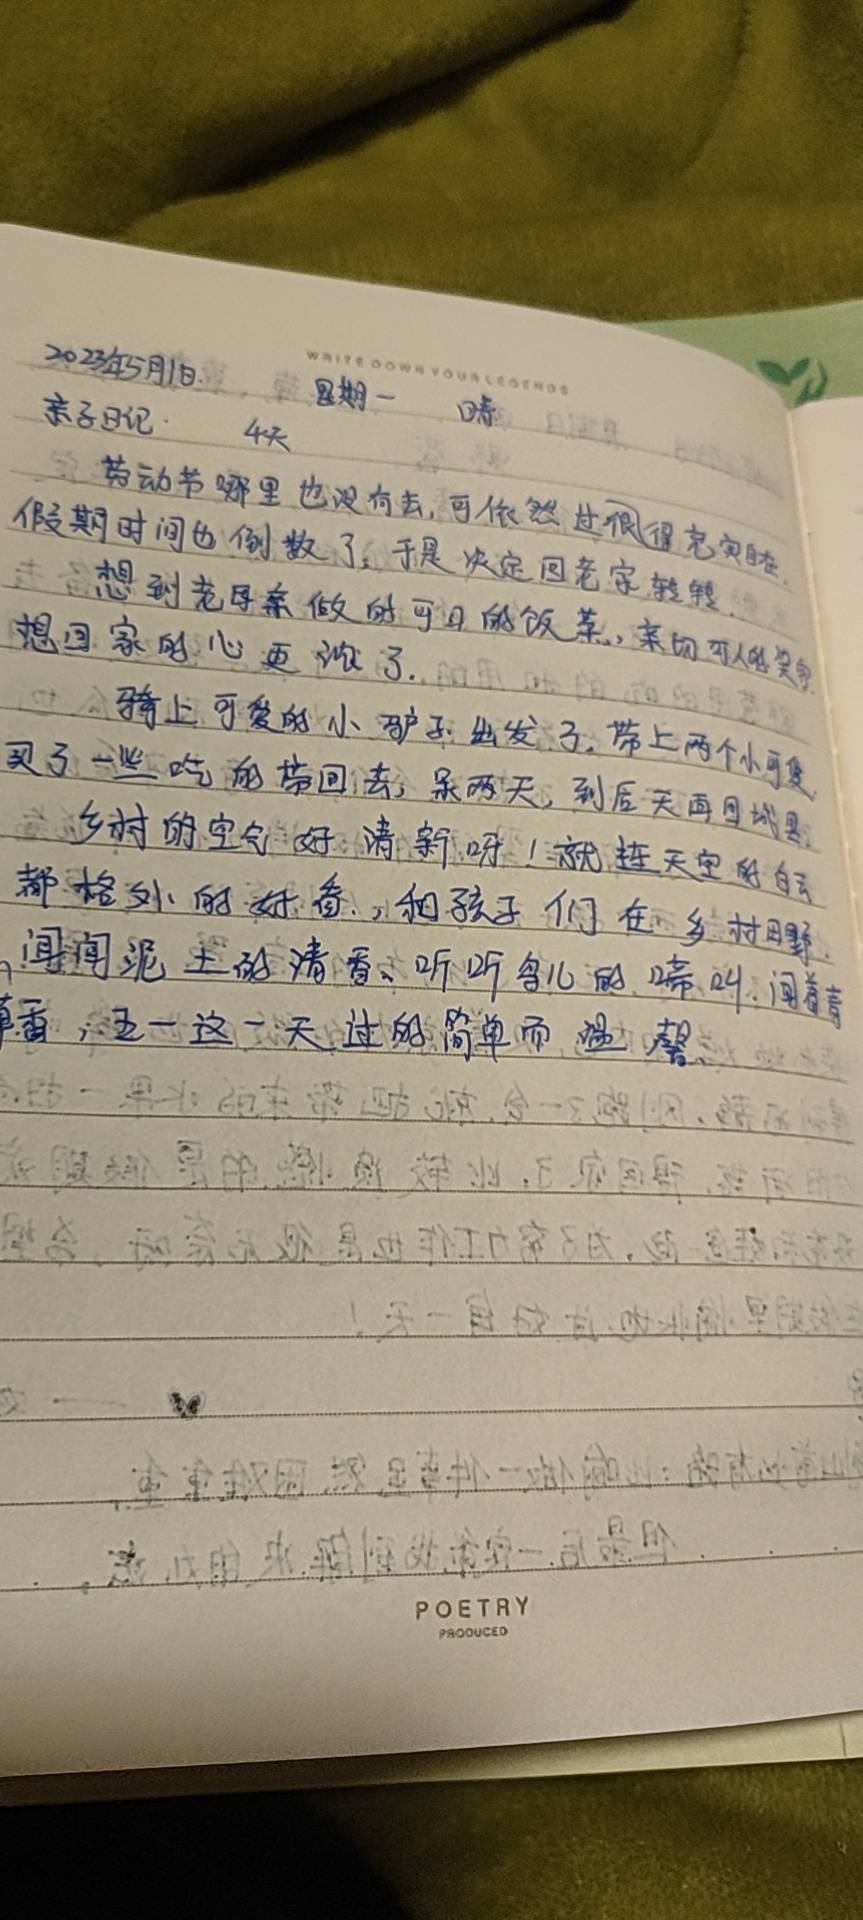 WRITE DOWN YOUR LEGENDS
2023年5月1日. 星期一 晴
亲子日记. 4天
劳动节哪里也没有去,可依然过很得充实自在.
假期时间也倒数了,于是决定回老家转转.
想到老母亲做的可口的饭菜,亲切可人的笑容.
想回家的心更浓了.
骑上可爱的小驴子出发了,带上两个小可爱.
买了一些吃的带回去,呆两天,到后天再回城里.
乡村的空气好清新呀!就连天空的白云
都格外的好看,和孩子们在乡村田野.
闻闻泥土的清香、听听鸟儿的啼叫.闻着青
草香,五一这一天过的简单而温馨.
POETRY
PRODUCED